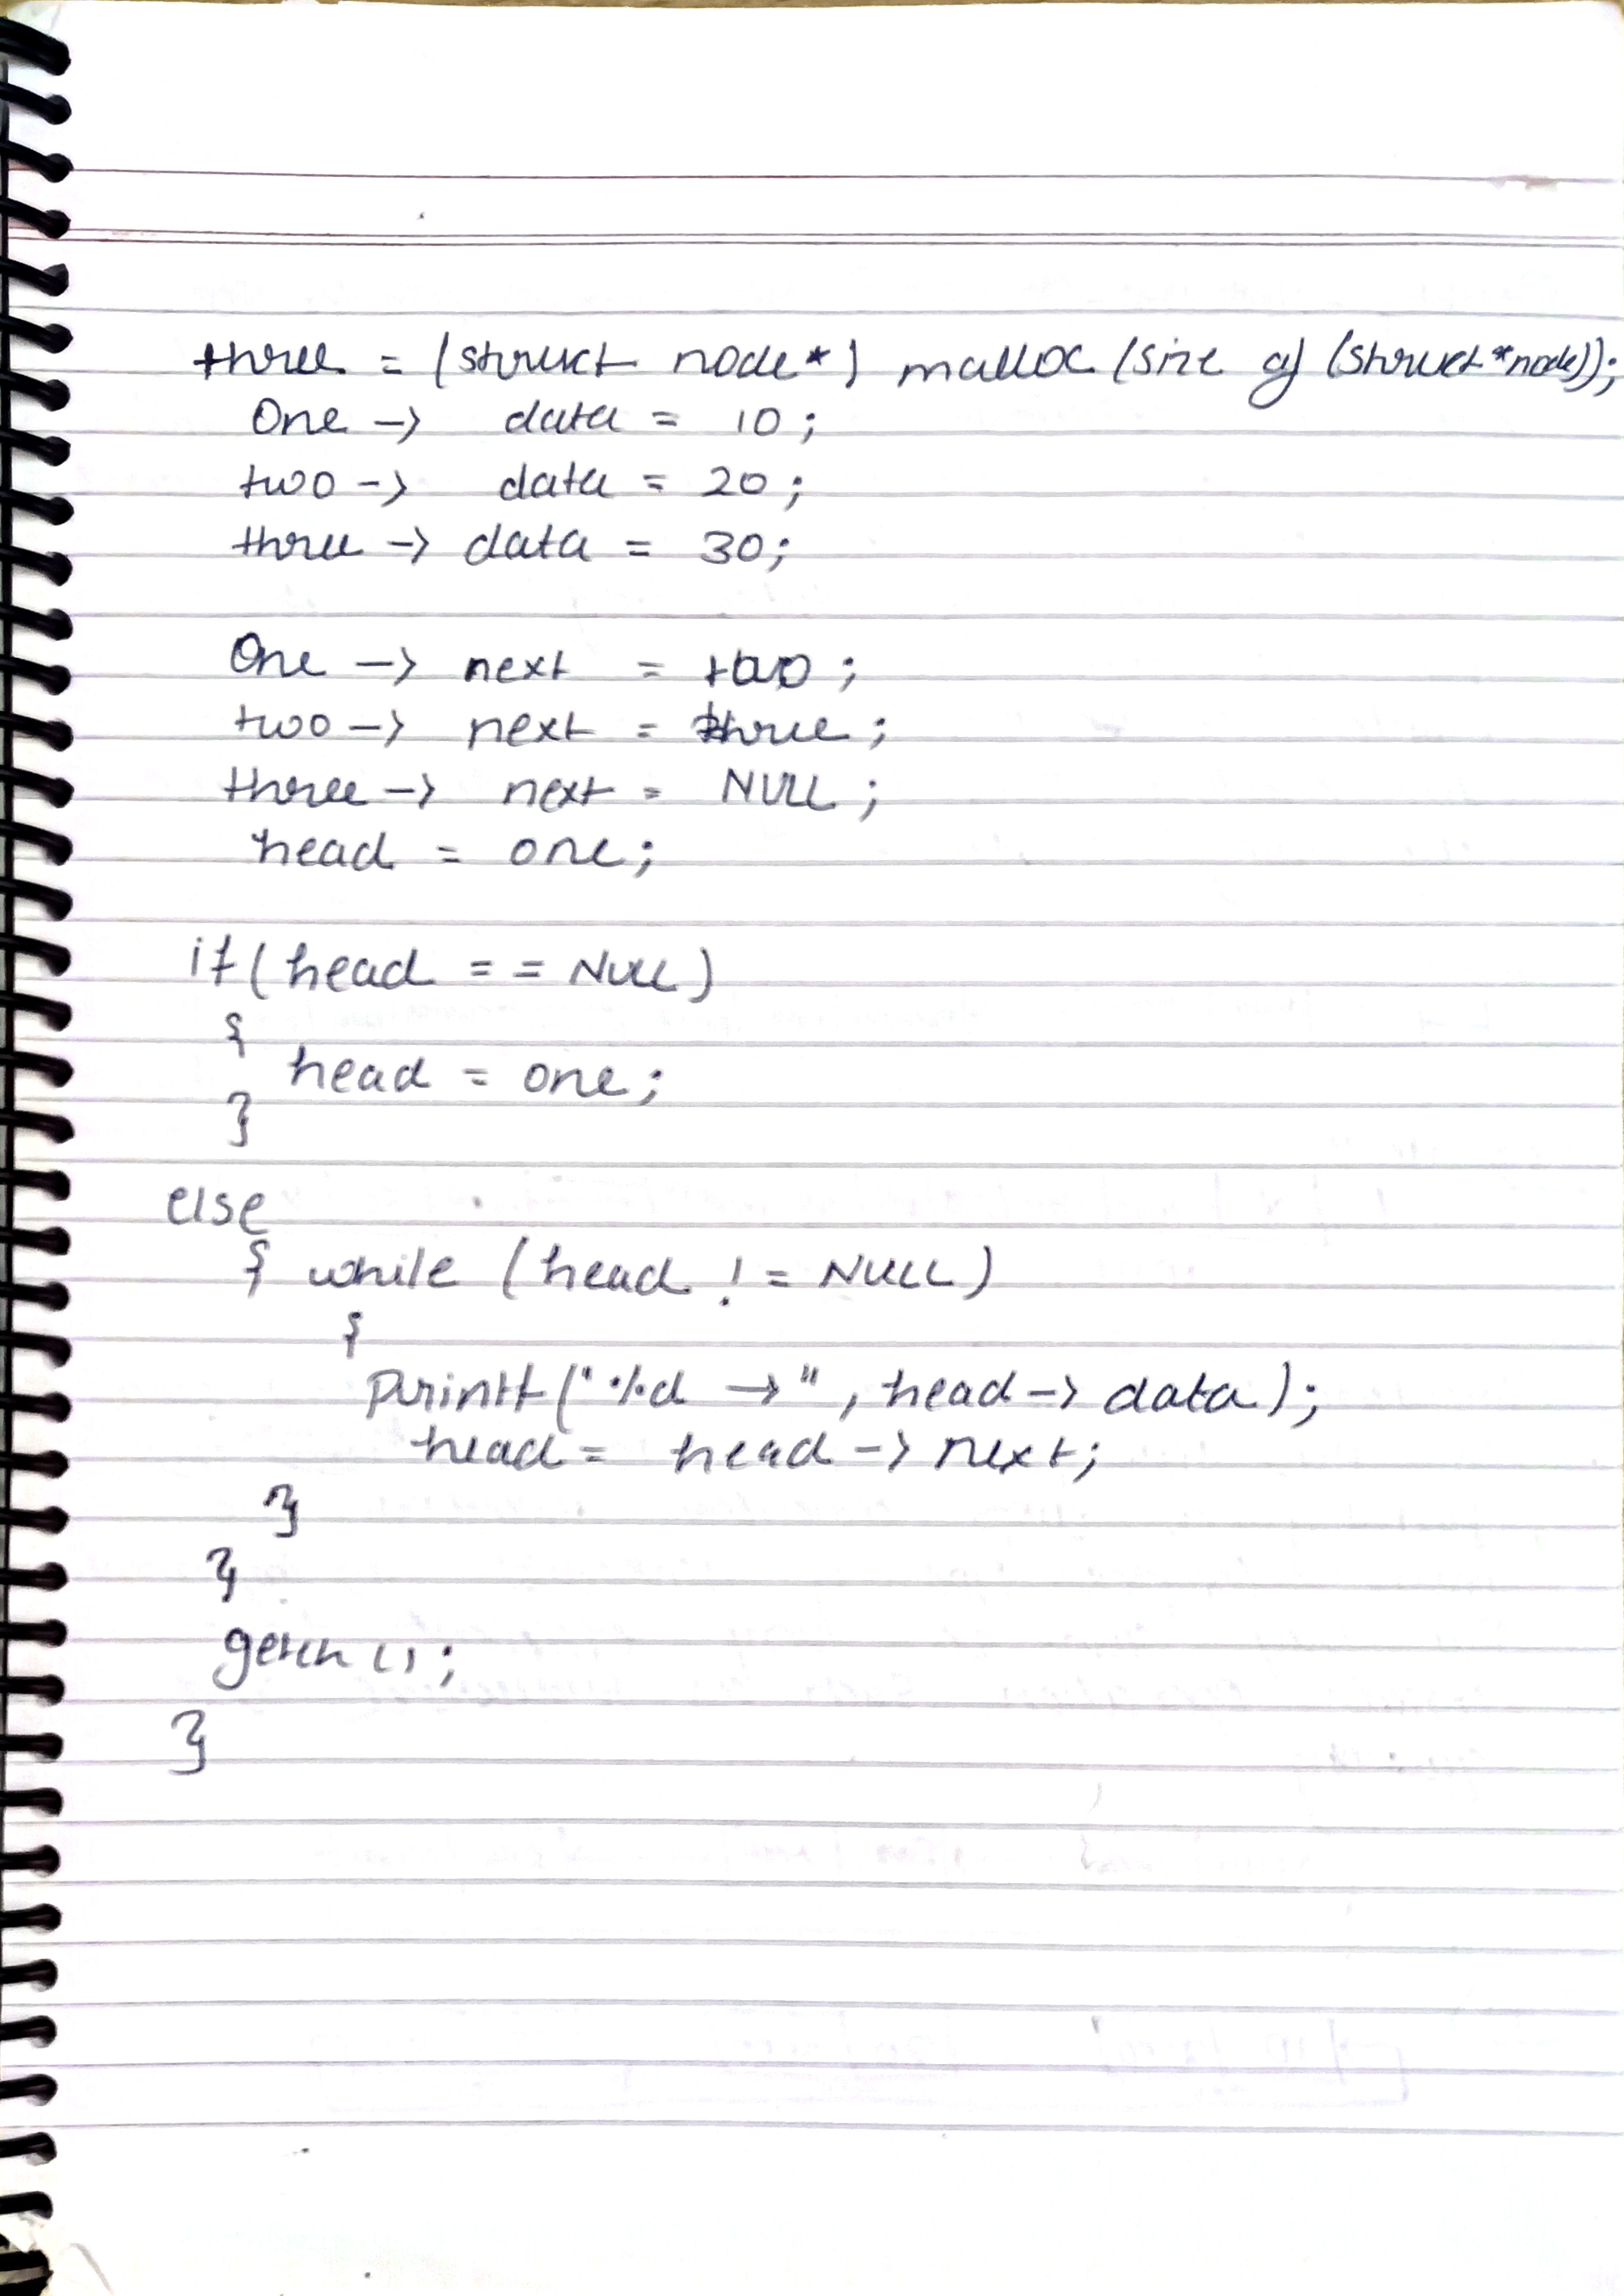 three = (struct node*) malloc (size of (struct *node));
One -> data = 10;
two -> data = 20;
three -> data = 30;
One -> next = two;
two -> next = three;
three -> next = NULL;
head = one;
if (head == NULL)
{
head = one;
}
else
{ while (head != NULL)
{
printf("%d →", head -> data);
head = head -> next;
}
}
getch ();
}